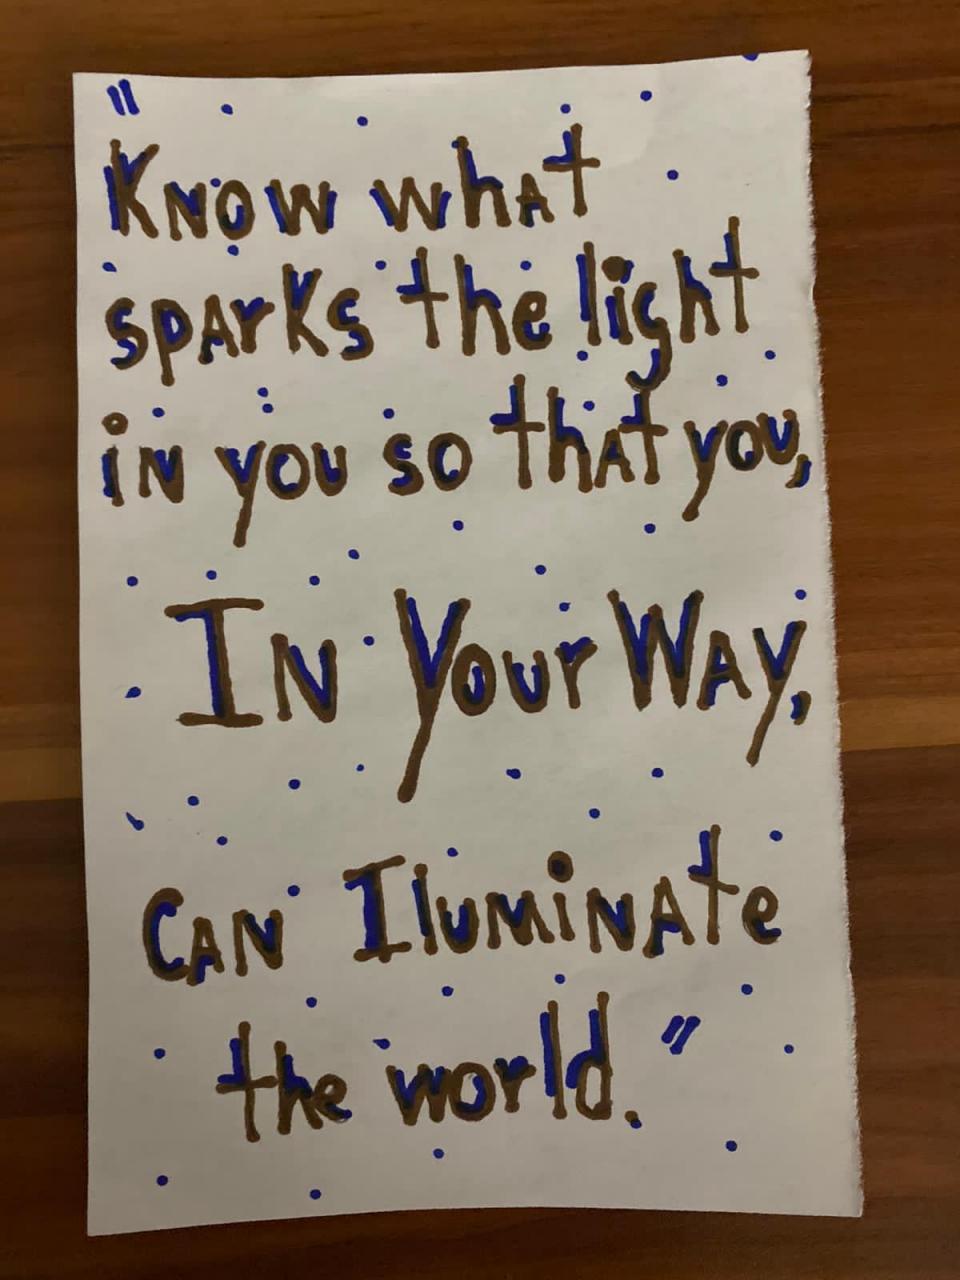 "
Know what
sparks the light
in you so that you,
In Your Way,
Can Iluminate
the world."